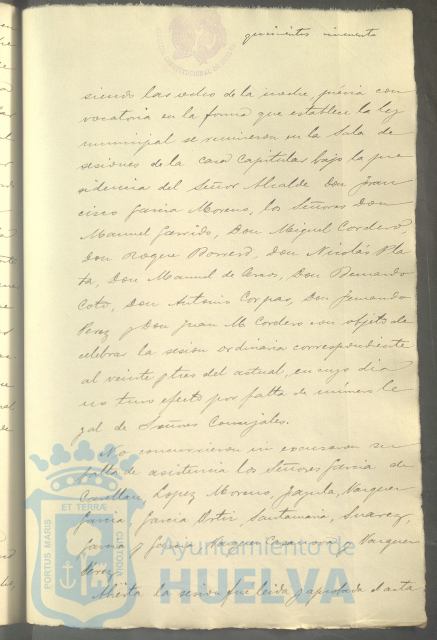 quinientos cincuenta
siendo las ocho de la noche, prévia con
vocatoria en la forma que establece la ley
municipal se reunieron en la Sala de
sesiones de la casa Capitular bajo la pre
sidencia del Señor Alcalde Don Fran
cisco Garcia Moreno, los Señores Don
Manuel Garrido, Don Miguel Cordero,
Don Roque Borrero, Don Nicolás Pla
ta, Don Manuel de Don Bernardo
Coto, Don Antonio Corpas, Don Fernando
Perez y Don Juan M. Cordero con objeto de
celebrar la sesion ordinaria correspondiente
al veinte y tres del actual, en cuyo dia
no tuvo efecto por falta de número le
gal de Señores Concejales.
No concurrieron ni excusaron su
falta de asistencia los Señores Garcia de
Lopez Moreno, Vazquez
Garcia, Garcia Ortiz, Santamaria, Suarez,
Garcia y Garcia, Vazquez y Vazquez
Perez.
Abierta la sesion fue leida y aprobada el acta
PORTUS MARIS ET TERRÆ CUSTODIA
Ayuntamiento de
HUELVA